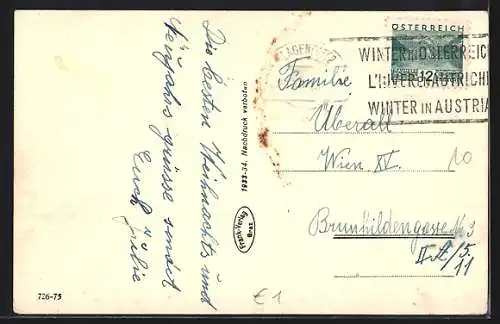 Die besten Weihnachts und
Neujahrs grüsse sendet
Euch
726-75
1933-34. Nachdruck verboten
Frank-Verlag
Graz
ÖSTERREICH
12
KLAGENFURT 2
WINTER IN ÖSTERREICH
L'HIVER EN AUTRICHE
WINTER IN AUSTRIA
Familie
Überall
Wien XV.
10
Brunhildengasse No 3
II. St./5.
11
€1